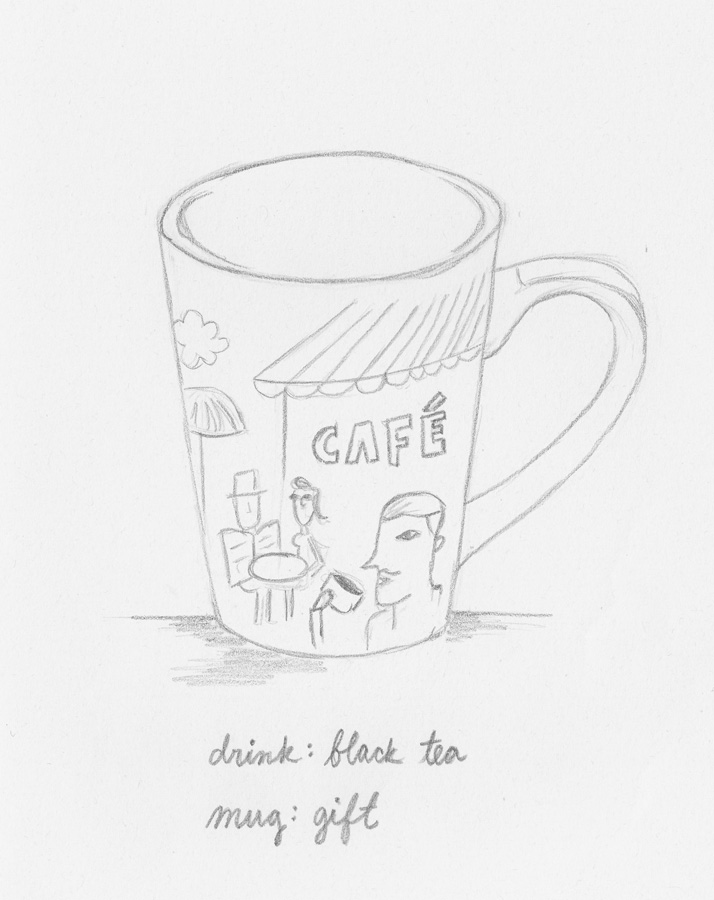 CAFÉ
drink: black tea
mug: gift